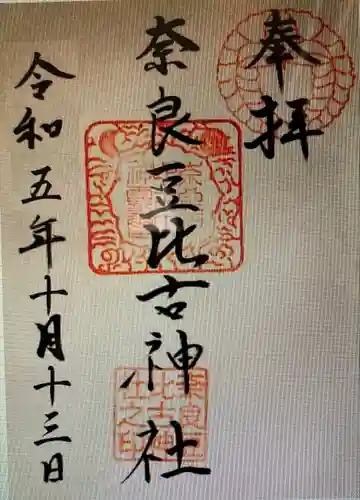 奉拝
奈良豆比古神社
令和五年十月十三日
奈良豆
比古神
社之印